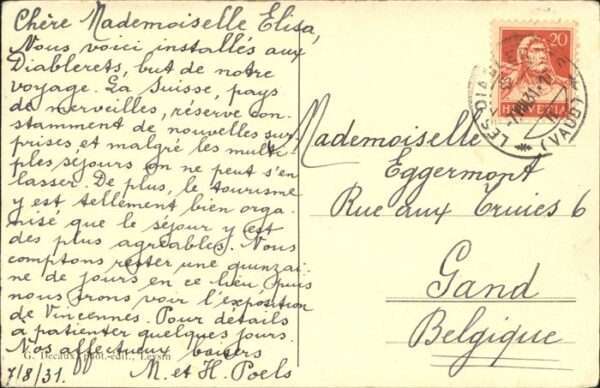 Chère Mademoiselle Elisa,
Nous voici installés aux
Diablerets, but de notre
voyage. La Suisse, pays
de merveilles, réserve con-
stamment de nouvelles sur-
prises et malgré les multi-
ples séjours on ne peut s'en
lasser. De plus, le tourisme
y est tellement bien orga-
nisé que le séjour y est
des plus agréables. Nous
comptons rester une quinzai-
ne de jours en ce lieu, puis
nous irons voir l'exposition
de Vincennes. Pour détails
à patienter quelques jours.
Nos affectueux baisers
7/8/31. M. et H. Poels
20
HELVETIA
LES DIABLERETS
(VAUD)
Mademoiselle
Eggermont
Rue aux Truies 6
Gand
Belgique
phot.-édit., Leysin